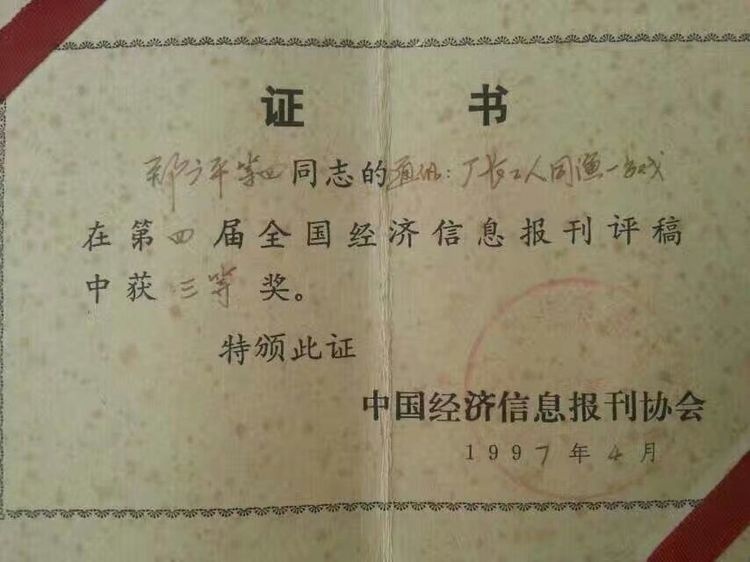 证书
同志的通讯:厂长工人同演一台戏
在第四届全国经济信息报刊评稿
中获三等奖。
特颁此证
中国经济信息报刊协会
1997年4月